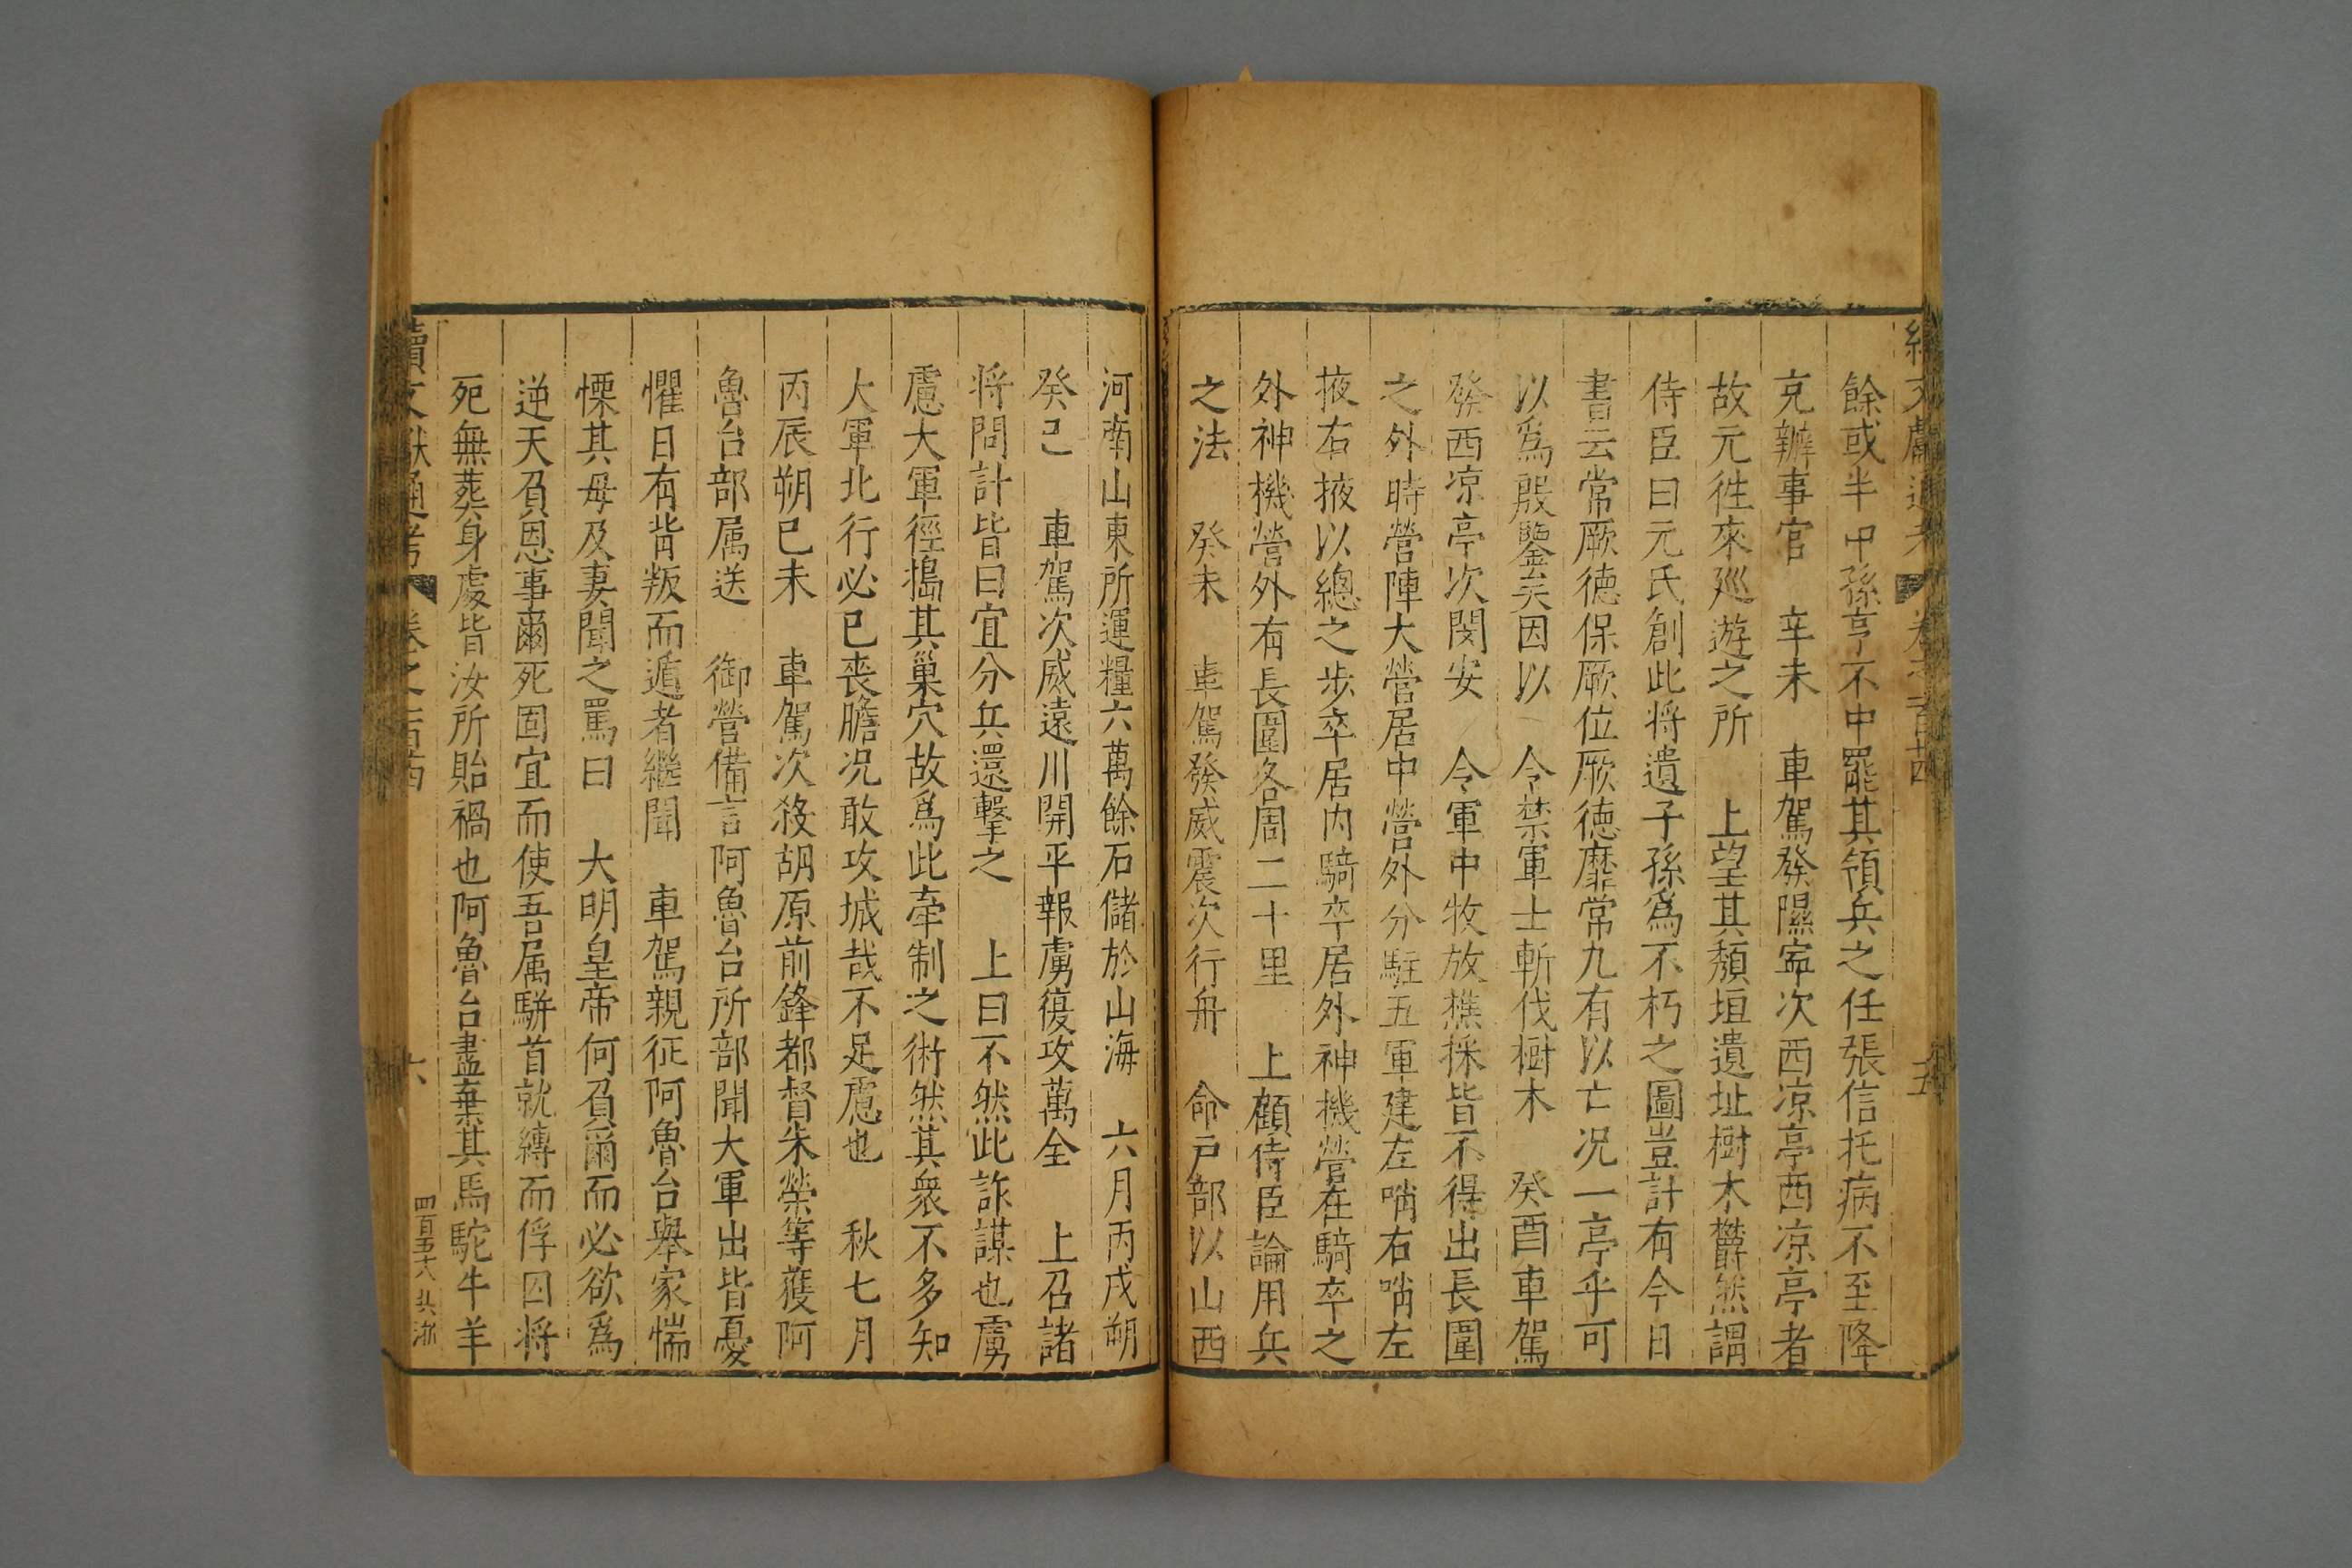 餘或半中孫亨不中罷其領兵之任張信托病不至降
克辦事官　辛未　車駕發隰寧次西凉亭西凉亭者
故元徃來廵遊之所　上望其頹垣遺址樹木欝然謂
侍臣曰元氏創此将遺子孫爲不朽之圖豈計有今日
書云常厥德保厥位厥德靡常九有以亡况一亭乎可
以爲殷鑒矣因以　令禁軍士斬伐樹木　癸酉車駕
發西凉亭次閔安　令軍中牧放樵採皆不得出長圍
之外時營陣大營居中營外分駐五軍建左哨右哨左
掖右掖以總之步卒居内騎卒居外神機營在騎卒之
外神機營外有長圍各周二十里　上顧侍臣論用兵
之法　癸未　車駕發威震次行舟　命戸部以山西
河南山東所運糧六萬餘石儲於山海　六月丙戌朔
癸己　車駕次威遠川開平報虜復攻萬全　上召諸
将問計皆曰宜分兵還擊之　上曰不然此詐謀也虜
慮大軍徑搗其巢穴故爲此牽制之術然其衆不多知
大軍北行必已喪膽况敢攻城哉不足慮也　秋七月
丙辰朔已未　車駕次殺胡原前鋒都督朱榮等獲阿
魯台部属送　御營備言阿魯台所部聞大軍出皆憂
懼日有背叛而遁者繼聞　車駕親征阿魯台舉家惴
慄其母及妻聞之罵曰　大明皇帝何負爾而必欲爲
逆天負恩事爾死固宜而使吾属駢首就縛而俘囚将
死無葬身處皆汝所貽禍也阿魯台盡棄其馬駝牛羊
續文獻通考　卷之　六